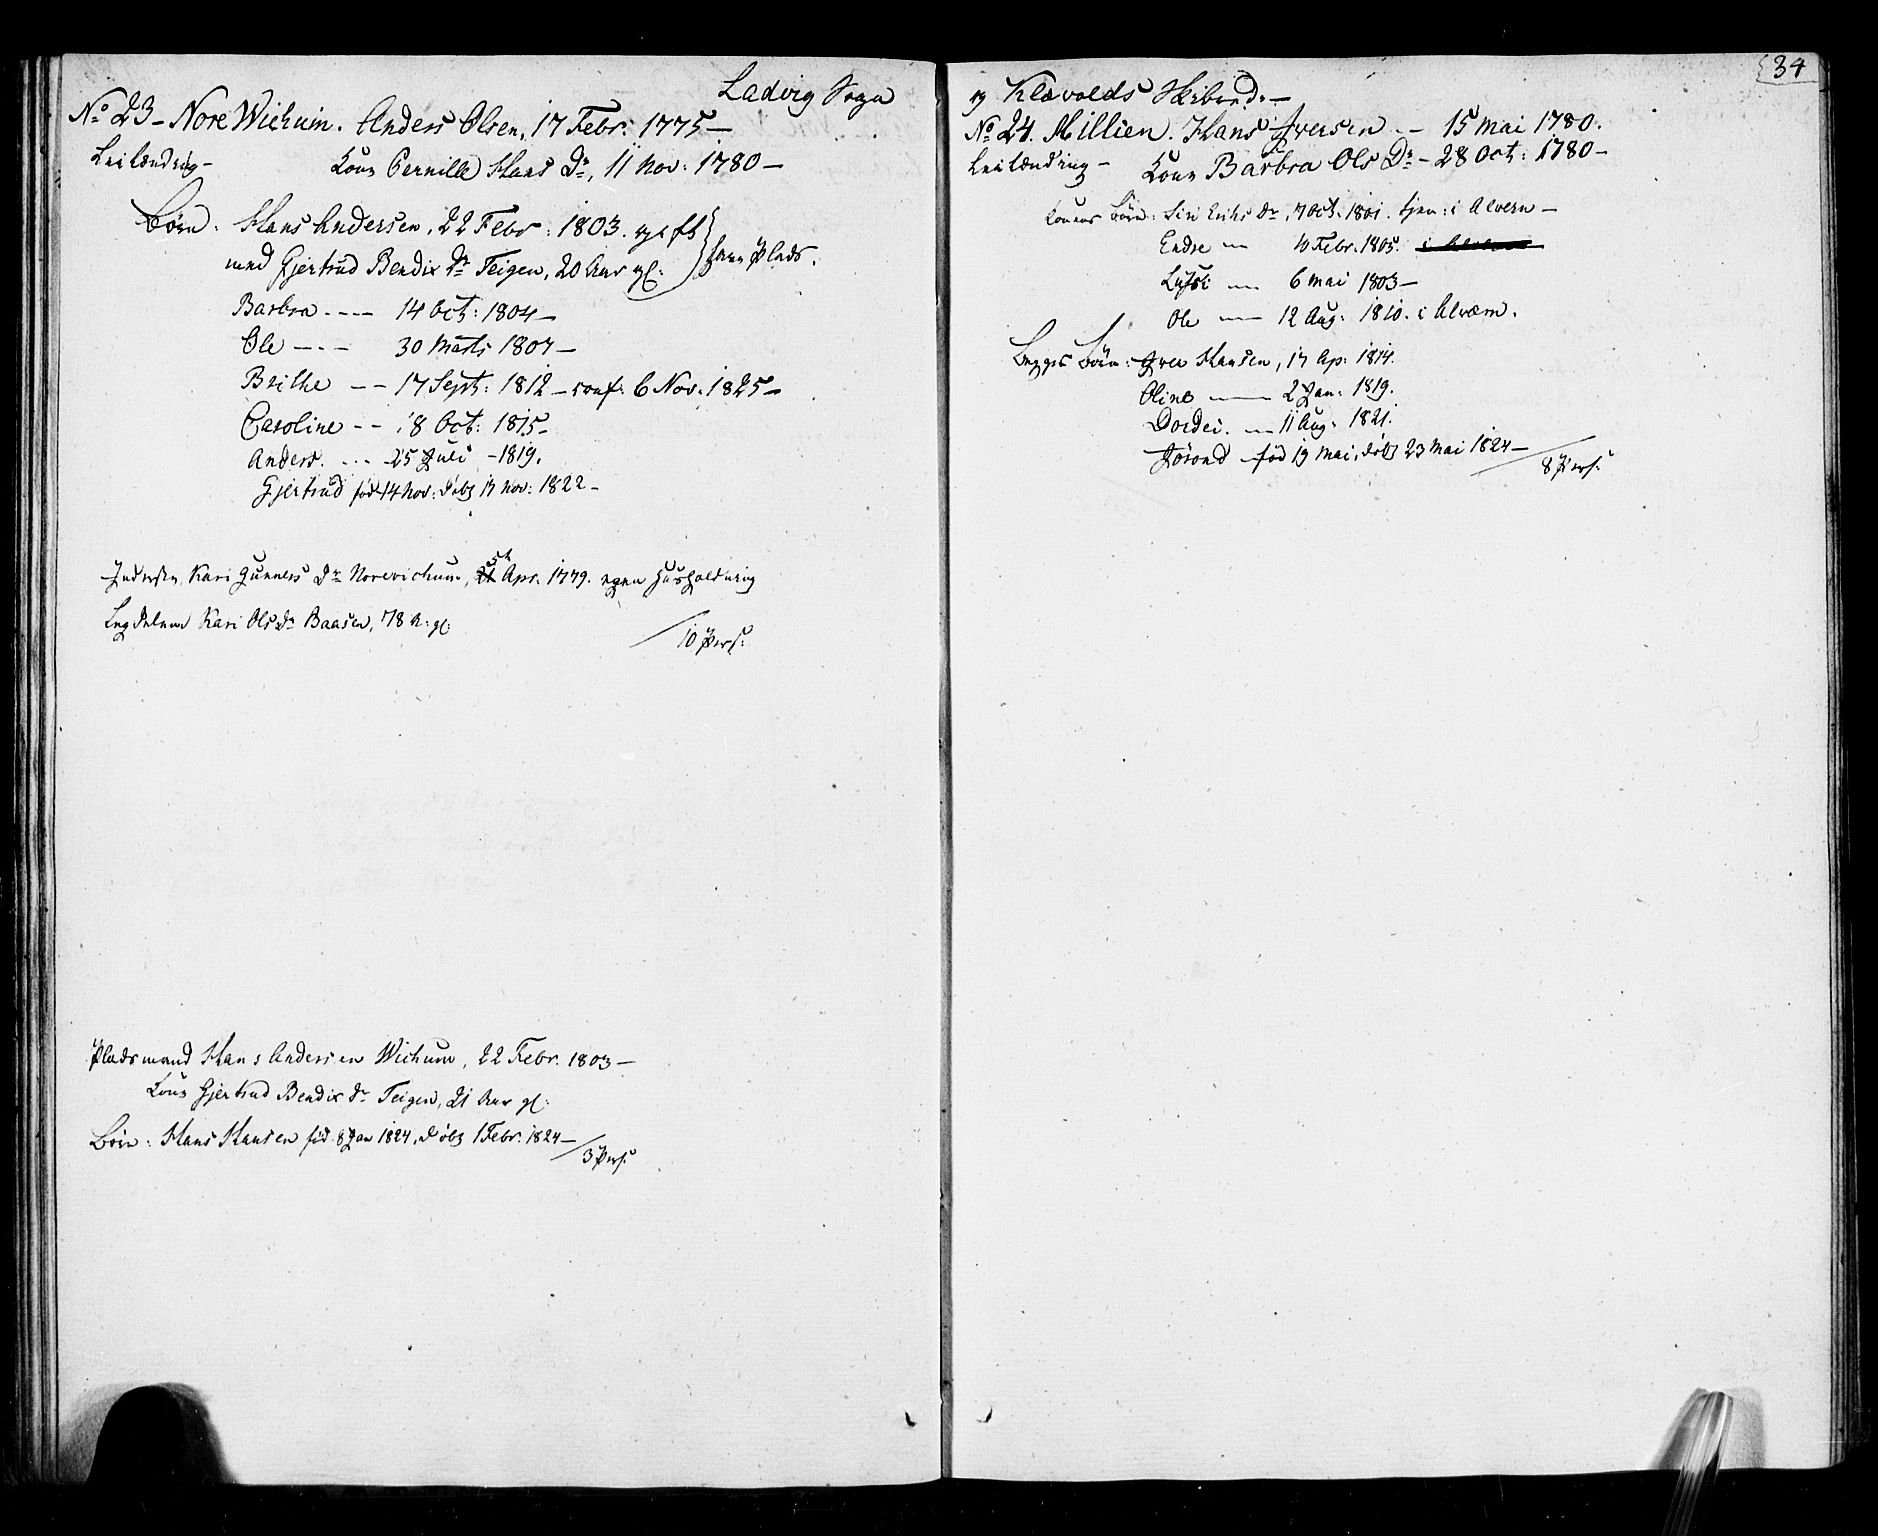 Ladvig Sogn
No 23 - Nore Wichum. Anders Olsen, 17 Febr: 1775 -
Leilændig - Kone Pernille Hans Dr, 11 Nov: 1780 -
Børn: Hans Andersen, 22 Febr: 1803. gift
med Gjertrud Bendix dr Teigen, 20 Aar gl: } paa Plads.
Barbra ---- 14 Oct: 1804 -
Ole --- 30 Marts 1807 -
Brithe -- 17 Sept: 1812 - conf: 6 Nov: 1825 -
Caroline -- 18 Oct: 1815 -
Anders --- 25 Juli - 1819.
Gjertrud fød 14 Nov: døbt 17 Nov: 1822 -
Inderste, Kari Gunners Dr Norevichum, 5te Apr. 1779. egen Huusholdning
Legdelem Kari Ols dr Baasen, 78 A: gl:
10 Pers:
Pladsmand Hans Andersen Wichum, 22 Febr. 1803 -
Kone Gjertrud Bendix dr Teigen, 21 Aar gl:
Børn: Hans Hansen fød 8 Jan 1824, døbt 1 Febr. 1824 -
3 Pers:
34
og Klævolds Skibred. -
No 24. Millien. Hans Iversen -- 15 Mai 1780.
Leilænding - Kone Barbra Ols Dr - 28 Oct: 1780 -
Konens Børn: Siri Eriks dr, 7 Oct: 1801. tjen: i Alvern -
Endre - 10 Febr. 1805.
- 6 Mai 1803 -
Ole - 12 Aug: 1810. i Alværn.
Begges Børn: Iver Hansen, 17 Ap: 1814.
Oline - 2 Jan: 1819.
Dordei. - 11 Aug: 1821.
Jorond fød 19 Mai, døbt 23 Mai 1824 -
8 Pers: